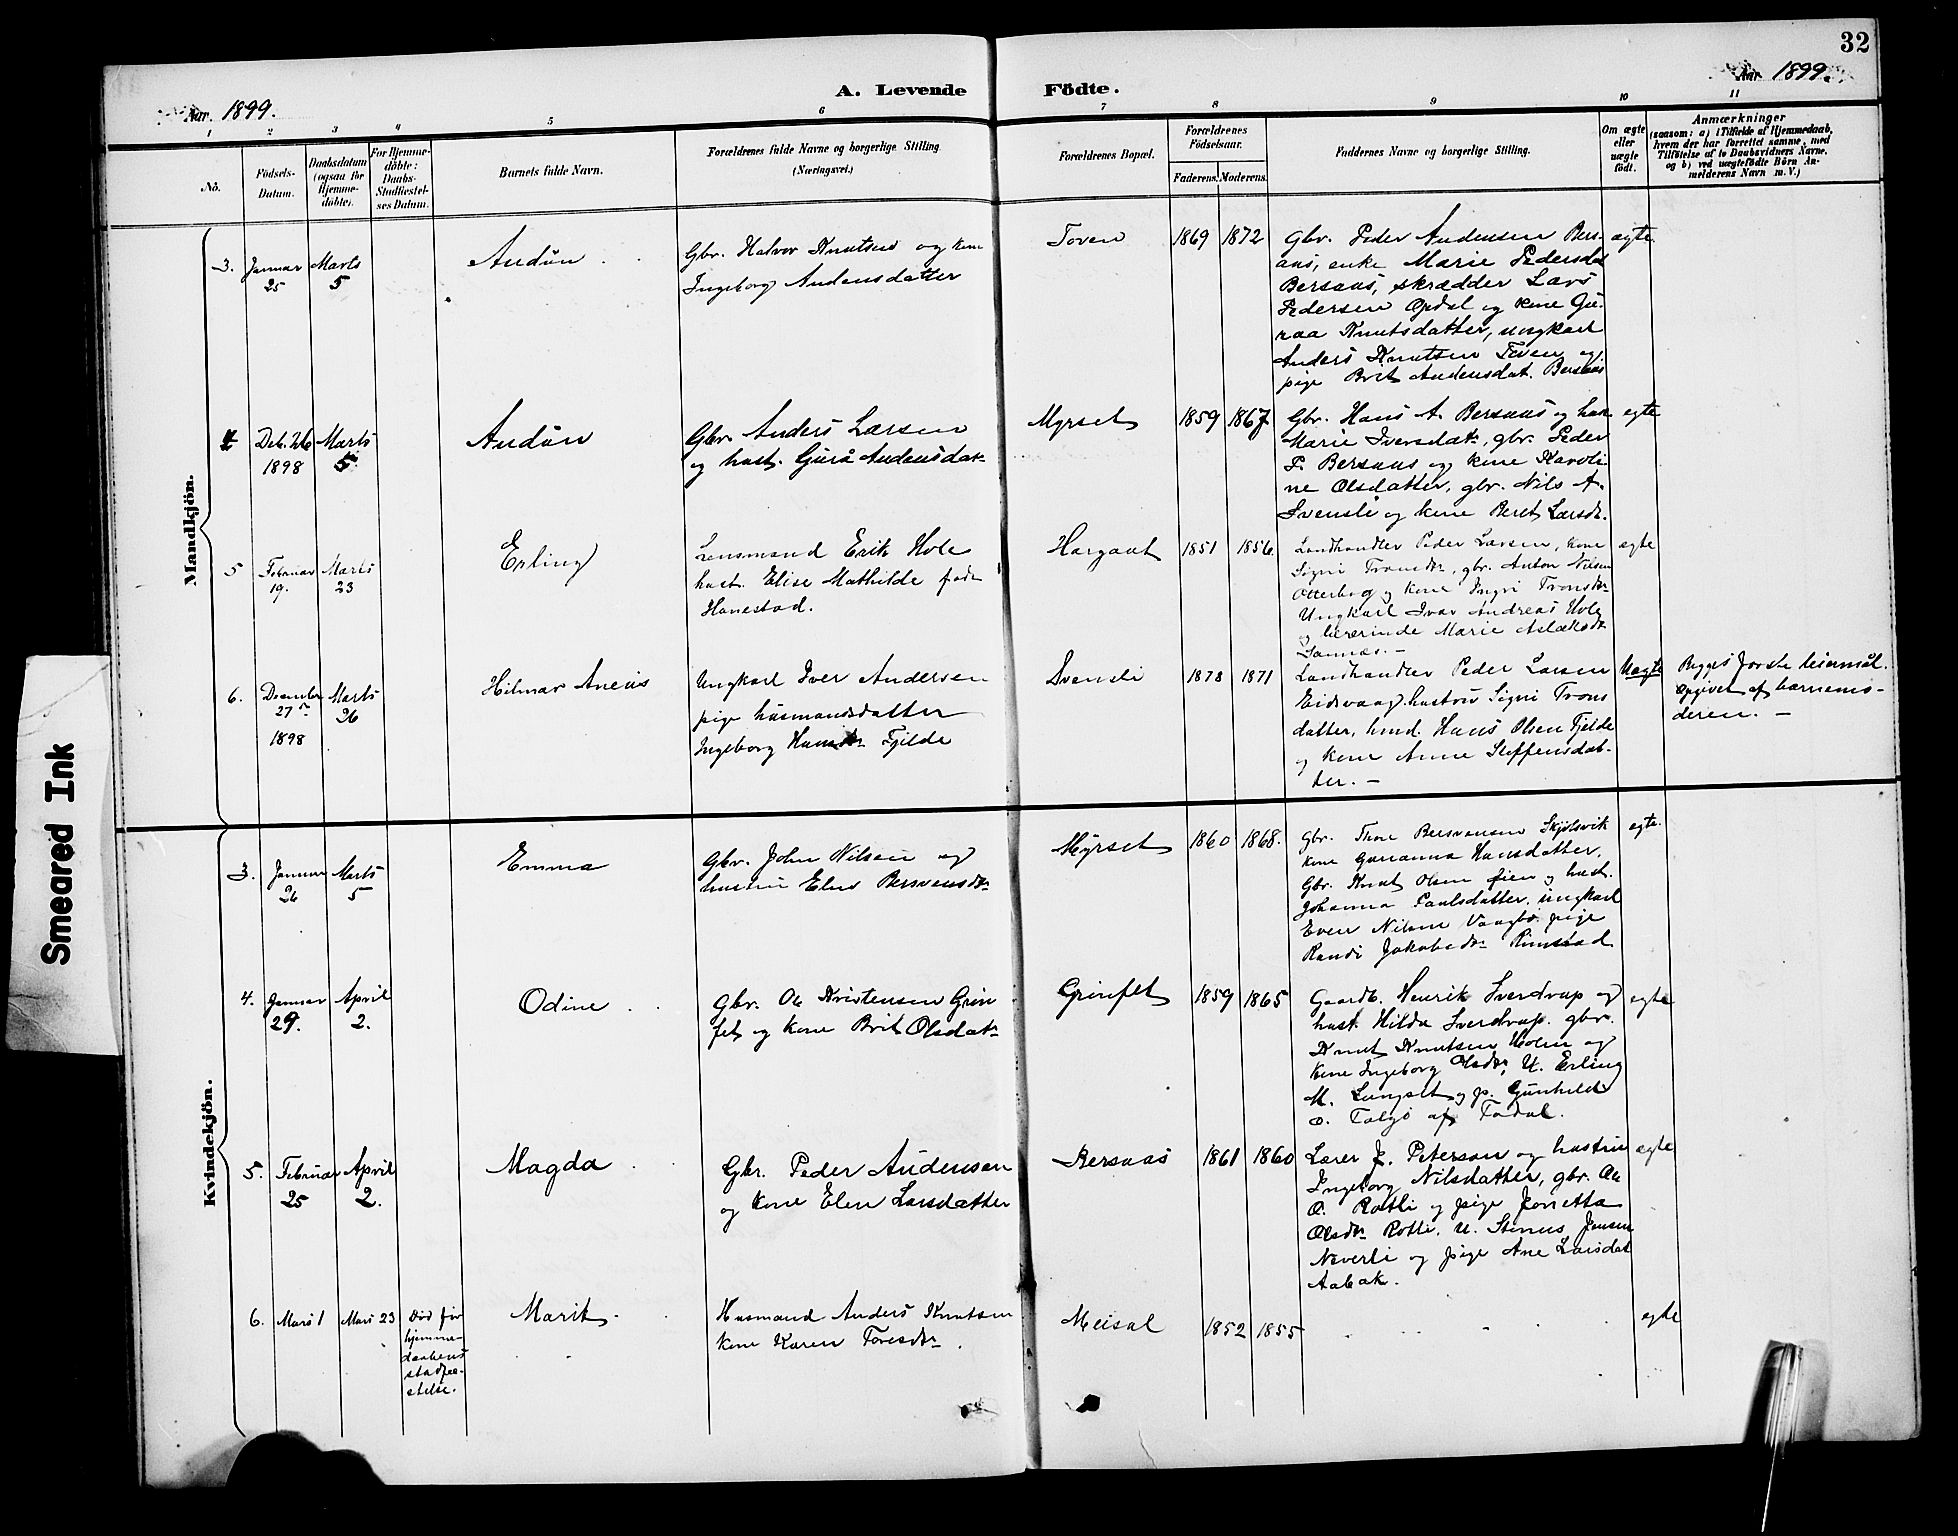 32
Aar. 1899.
A. Levende
Födte.
Aar 1899.
1 2 3 4 5 6 7 8 9 10 11
No.
Födsels-
Datum.
Daabsdatum
(ogsaa for
Hjemme-
döbte).
For Hjemme-
döbte:
Daabs-
Stadfæstel-
ses Datum.
Barnets fulde Navn.
Forældrenes fulde Navne og borgerlige Stilling
(Næringsvei.)
Forældrenes Bopæl.
Forældrenes
Födselsaar.
Faderens. Moderens.
Faddernes Navne og borgerlige Stilling.
Om ægte
eller
uægte
födt.
Anmærkninger
(saasom: a) i Tilfælde af Hjemmedaab,
hvem der har forrettet samme, med
Tilföielse af to Daabsvidners Navne,
og b) ved uægtefödte Börn An-
melderens Navn m. V.)
Mandkjön.
3.
Januar
25
Marts
5
Audün
Gbr. Halvor Knutsen og kone
Ingeborg Audensdatter
Toven
1869 1872
Gbr. Peder Audensen Bers-
aas, enke Marie Pedersdat
Bersaas, skrædder Lars
Pedersen Opdøl og kone Gu-
raa Knutsdatter, ungkarl
Anders Knutsen Toven og
pige Brit Audensdat. Bersaas
ægte
4
Deb. 26
1898
Marts
5
Audün
Gbr. Anders Larsen
og hust. Gurå Audensdat
Myrset
1859 1867
Gbr. Hans A. Bersaas og hus
Marie Iversdat, gbr. Peder
P. Bersaas og kone Karoli-
ne Olsdatter, gbr. Nils A.
Svensli og kone Beret Larsdr.
egte
5
Februar
19.
Marts
23
Erling
Lensmand Erik Hole
hust. Elise Mathilde født
Hanestad.
Hargaut
1851 1856
Landhandler Peder Larsen, kone
Signi Tronsdr, gbr. Anton Nilsen
Otterbog og kone Ingri Tronsdr
Ungkarl Ivar Andreas Hole
og lærerinde Marie Aslaksdr
Sannes. –
egte
6.
Dsember
27de
1898
Marts
26
Hilmar Aneus
Ungkarl Iver Andersen
pige husmandsdatter
Ingeborg Hansdr Fjilde
Svensli
1878 1871
Landhandler Peder Larsen
Eidsvaag, hustru Signi Trons
datter, hmd. Hans Olsen Fjelde
og kone Anne Steffensdat-
ter. –
Uægte
Begges første leiermål.
Opgivet af barnemo-
deren. –
Kvindekjön.
3.
Januar
26
Marts
5
Emma
Gbr. John Nilsen og
hustru Elen Bersvensdr
Myrset
1860 1868.
Gbr. Tore Bersvensen Skjølsvik
kone Gurianna Hansdatter,
Gbr. Knut Olsen Øien og hust.
Johanna Paulsdatter, ungkarl
Even Nilsen Vaagbø pige
Randi Jakobsdr Rimstad
egte.
4.
Januar
29.
April
2.
Odine
Gbr. Ole Kristensen Grin
fet og kone Brit Olsdatr
Grinfet
1859 1865
Gaardb. Henrik Sverdrup og
hust. Hilda Sverdrup. gbr.
Knut Knutsen Holm og
kone Ingeborg Olsdr, U. Erling
M. Langset og p. Gunhild
O. Talgø af Todal.
egte
5.
Februar
25
April
2.
Magda
Gbr. Peder Audensen
og kone Elen Larsdatter
Bersaas
1861 1860
Lærer J. Peterson og hustru
Ingeborg Nilsdatter, gbr. Ole
O. Rotli og pige Jorretta
Olsdr Rotli. U. Stinus Jensen
Neverli og pige Ane Larsdat
Aabak.
egte
6.
Mars 1
Mars 23
Død før
hjemme-
daabens
stadfæ-
stelse.
Marit
Husmand Anders Knutsen
kone Karen Toresdr.
Meisal
1852 1855
egte
Smeared Ink